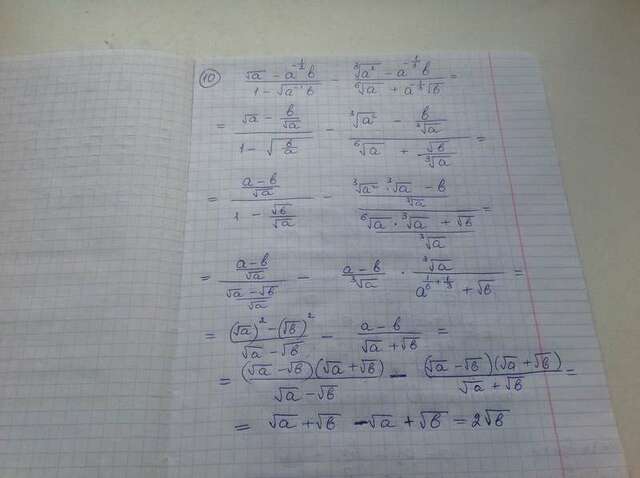 10) (√a - a^(-1/2) b)/(1 - √(a^(-1) b)) - (∛(a²) - a^(-1/3) b)/(⁶√a + a^(-1/3) √b) =
= (√a - b/√a)/(1 - √(b/a)) - (∛(a²) - b/∛a)/(⁶√a + √b/∛a) =
= ((a-b)/√a)/(1 - √b/√a) - ((∛(a²) · ∛a - b)/∛a)/((⁶√a · ∛a + √b)/∛a) =
= ((a-b)/√a)/((√a - √b)/√a) - (a-b)/∛a · ∛a/(a^(1/6 + 1/3) + √b) =
= ((√a)² - (√b)²)/(√a - √b) - (a-b)/(√a + √b) =
= ((√a - √b)(√a + √b))/(√a - √b) - ((√a - √b)(√a + √b))/(√a + √b) =
= √a + √b - √a + √b = 2√b